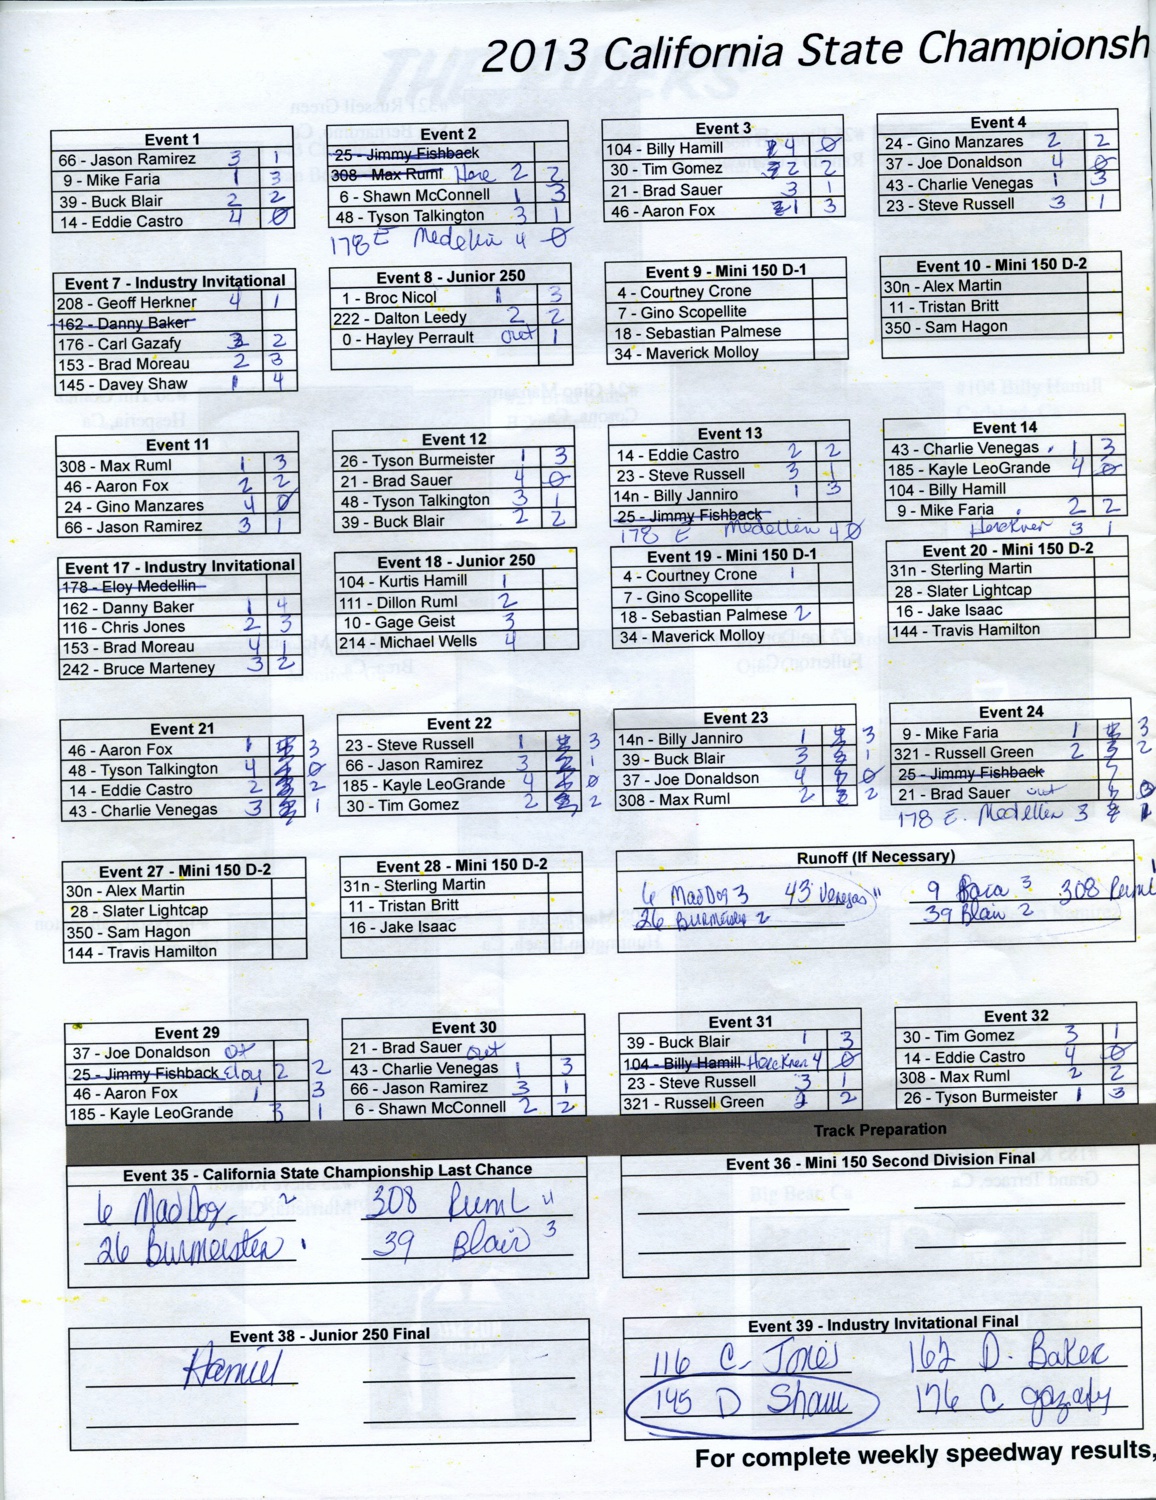 2013 California State Championsh
Event 1
66 - Jason Ramirez 3 1
9 - Mike Faria 1 3
39 - Buck Blair 2 2
14 - Eddie Castro 4 0
Event 2
25 - Jimmy Fishback
308 - Max Ruml 2 2
6 - Shawn McConnell 1 3
48 - Tyson Talkington 3 1
178 E Medellin 4 0
Event 3
104 - Billy Hamill 4 0
30 - Tim Gomez 2 2
21 - Brad Sauer 3 1
46 - Aaron Fox 1 3
Event 4
24 - Gino Manzares 2 2
37 - Joe Donaldson 4 0
43 - Charlie Venegas 1 3
23 - Steve Russell 3 1
Event 7 - Industry Invitational
208 - Geoff Herkner 4 1
162 - Danny Baker
176 - Carl Gazafy 3 2
153 - Brad Moreau 2 3
145 - Davey Shaw 1 4
Event 8 - Junior 250
1 - Broc Nicol 1 3
222 - Dalton Leedy 2 2
0 - Hayley Perrault out 1
Event 9 - Mini 150 D-1
4 - Courtney Crone
7 - Gino Scopellite
18 - Sebastian Palmese
34 - Maverick Molloy
Event 10 - Mini 150 D-2
30n - Alex Martin
11 - Tristan Britt
350 - Sam Hagon
Event 11
308 - Max Ruml 1 3
46 - Aaron Fox 2 2
24 - Gino Manzares 4 0
66 - Jason Ramirez 3 1
Event 12
26 - Tyson Burmeister 1 3
21 - Brad Sauer 4 0
48 - Tyson Talkington 3 1
39 - Buck Blair 2 2
Event 13
14 - Eddie Castro 2 2
23 - Steve Russell 3 1
14n - Billy Janniro 1 3
25 - Jimmy Fishback
178 E Medellin 4 0
Event 14
43 - Charlie Venegas 1 3
185 - Kayle LeoGrande 4 0
104 - Billy Hamill
9 - Mike Faria 2 2
Herkner 3 1
Event 17 - Industry Invitational
178 - Eloy Medellin
162 - Danny Baker 1 4
116 - Chris Jones 2 3
153 - Brad Moreau 4 1
242 - Bruce Marteney 3 2
Event 18 - Junior 250
104 - Kurtis Hamill 1
111 - Dillon Ruml 2
10 - Gage Geist 3
214 - Michael Wells 4
Event 19 - Mini 150 D-1
4 - Courtney Crone 1
7 - Gino Scopellite
18 - Sebastian Palmese 2
34 - Maverick Molloy
Event 20 - Mini 150 D-2
31n - Sterling Martin
28 - Slater Lightcap
16 - Jake Isaac
144 - Travis Hamilton
Event 21
46 - Aaron Fox 1 3
48 - Tyson Talkington 4 0
14 - Eddie Castro 2 2
43 - Charlie Venegas 3 1
Event 22
23 - Steve Russell 1 3
66 - Jason Ramirez 3 1
185 - Kayle LeoGrande 4 0
30 - Tim Gomez 2 2
Event 23
14n - Billy Janniro 1 3
39 - Buck Blair 3 1
37 - Joe Donaldson 4 0
308 - Max Ruml 2 2
Event 24
9 - Mike Faria 1 3
321 - Russell Green 2 2
25 - Jimmy Fishback
21 - Brad Sauer out 0
178 E. Medellin 3 1
Event 27 - Mini 150 D-2
30n - Alex Martin
28 - Slater Lightcap
350 - Sam Hagon
144 - Travis Hamilton
Event 28 - Mini 150 D-2
31n - Sterling Martin
11 - Tristan Britt
16 - Jake Isaac
Runoff (If Necessary)
6 MadDog 3 43 Venegas 9 Faria 3 308 Ruml
26 Burmeister 2 39 Blair 2
Event 29
37 - Joe Donaldson
25 - Jimmy Fishback Eloy 2 2
46 - Aaron Fox 1 3
185 - Kayle LeoGrande 3 1
Event 30
21 - Brad Sauer out
43 - Charlie Venegas 1 3
66 - Jason Ramirez 3 1
6 - Shawn McConnell 2 2
Event 31
39 - Buck Blair 1 3
104 - Billy Hamill Herkner 4 0
23 - Steve Russell 3 1
321 - Russell Green 2 2
Event 32
30 - Tim Gomez 3 1
14 - Eddie Castro 4 0
308 - Max Ruml 2 2
26 - Tyson Burmeister 1 3
Track Preparation
Event 35 - California State Championship Last Chance
6 MadDog 2 308 Ruml 4
26 Burmeister 1 39 Blair 3
Event 36 - Mini 150 Second Division Final
Event 38 - Junior 250 Final
Hamill
Event 39 - Industry Invitational Final
116 C. Jones 162 D. Baker
145 D Shaw 176 C gazafy
For complete weekly speedway results,